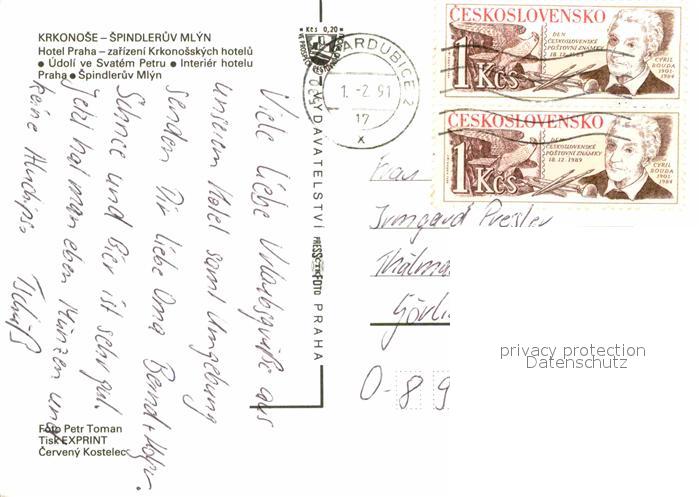 KRKONOŠE – ŠPINDLERŮV MLÝN
Hotel Praha – zařízení Krkonošských hotelů
● Údolí ve Svatém Petru ● Interiér hotelu
Praha ● Špindlerův Mlýn
Kčs 0,20
PARDUBICE 2
1.-2.91
17
x
ČESKOSLOVENSKO
DEN
ČESKOSLOVENSKÉ
POŠTOVNÍ ZNÁMKY
18.12.1989
CYRIL
BOUDA
1901-
1984
1 Kčs
ČESKOSLOVENSKO
DEN
ČESKOSLOVENSKÉ
POŠTOVNÍ ZNÁMKY
18.12.1989
CYRIL
BOUDA
1901-
1984
1 Kčs
VYDAVATELSTVÍ PRESSFOTO PRAHA
Viele liebe Urlaubsgrüße aus
unserem Hotel samt Umgebung
senden Dir liebe Oma Bernd +
Schnee und Bier ist sehr gut.
Jetzt hat man eben Münzen und
keine Tschüß
Frau
Irmgard
Görli
O-89
privacy protection
Datenschutz
Foto Petr Toman
Tisk EXPRINT
Červený Kostelec